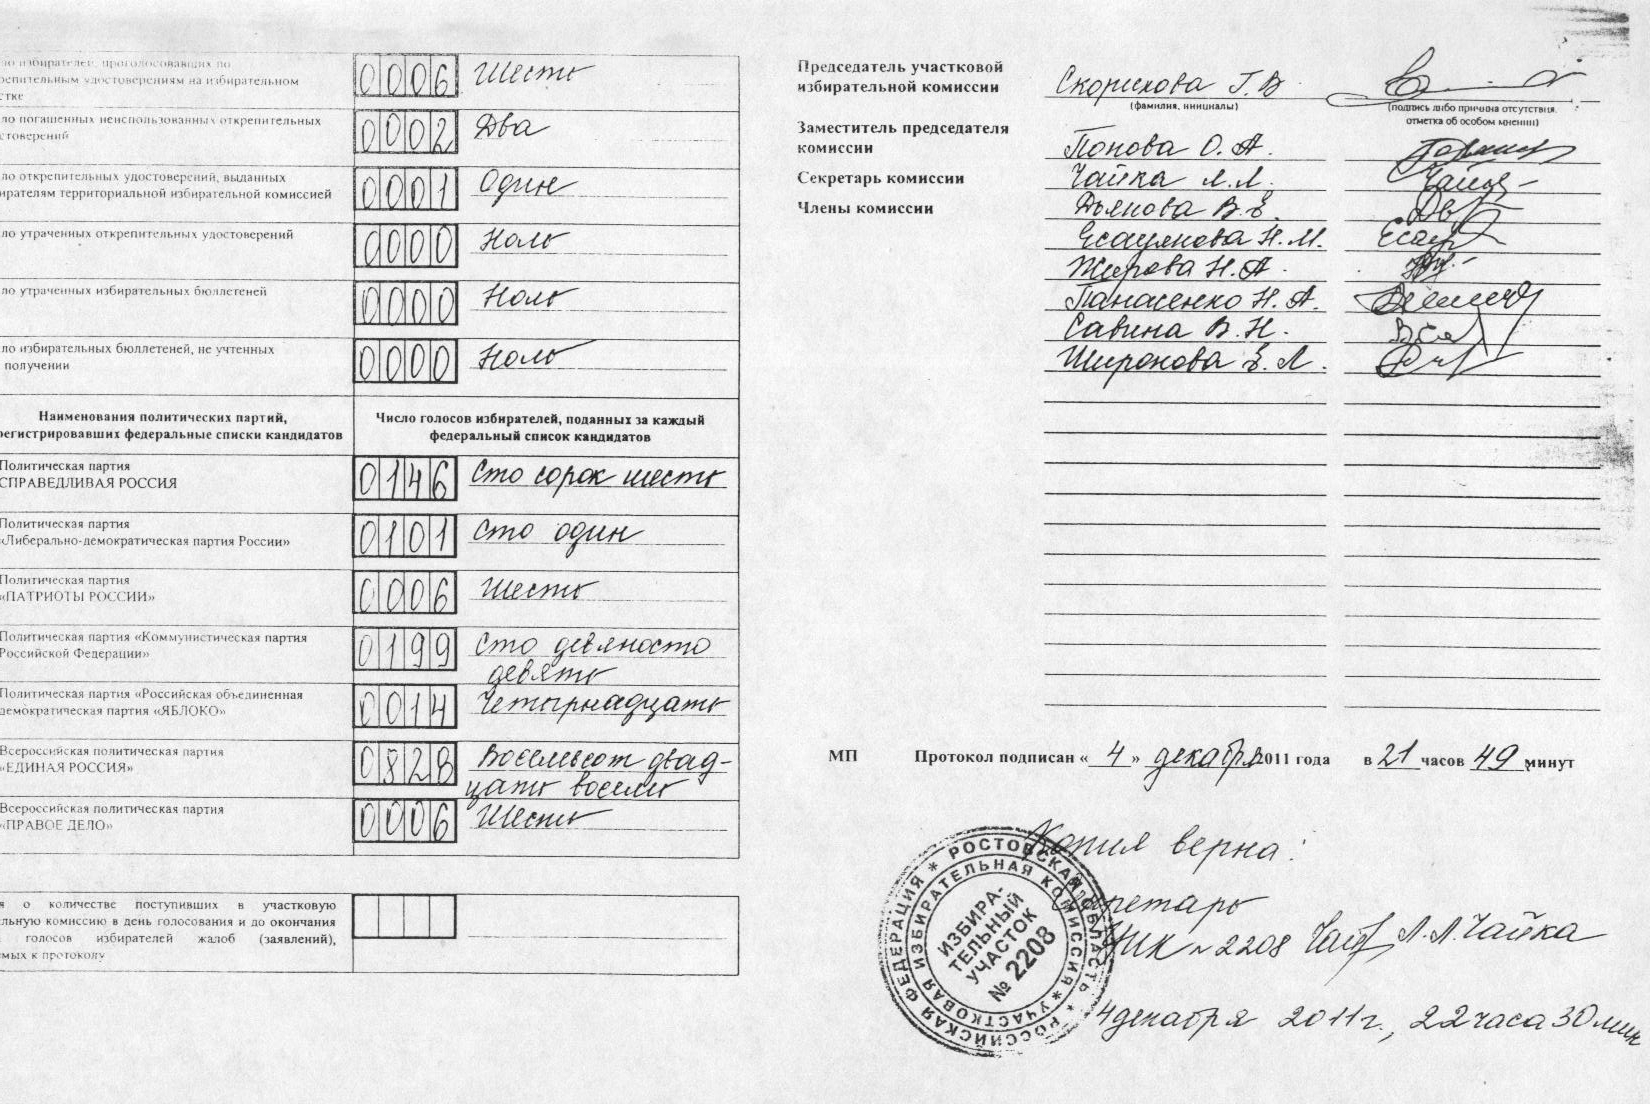 ло избирателей, проголосовавших по
репительным удостоверениям на избирательном
стке
0006 Шесть
ло погашенных неиспользованных открепительных
стоверений
0002 Два
ло открепительных удостоверений, выданных
ирателям территориальной избирательной комиссией
0001 Один
ло утраченных открепительных удостоверений
0000 Ноль
ло утраченных избирательных бюллетеней
0000 Ноль
ло избирательных бюллетеней, не учтенных
получении
0000 Ноль
Наименования политических партий,
регистрировавших федеральные списки кандидатов
Число голосов избирателей, поданных за каждый
федеральный список кандидатов
Политическая партия
СПРАВЕДЛИВАЯ РОССИЯ
0146 Сто сорок шесть
Политическая партия
«Либерально-демократическая партия России»
0101 Сто один
Политическая партия
«ПАТРИОТЫ РОССИИ»
0006 Шесть
Политическая партия «Коммунистическая партия
Российской Федерации»
0199 Сто девяносто
девять
Политическая партия «Российская объединенная
демократическая партия «ЯБЛОКО»
0014 Четырнадцать
Всероссийская политическая партия
«ЕДИНАЯ РОССИЯ»
0828 Восемьсот двад-
цать восемь
Всероссийская политическая партия
«ПРАВОЕ ДЕЛО»
0006 Шесть
я о количестве поступивших в участковую
ельную комиссию в день голосования и до окончания
голосов избирателей жалоб (заявлений),
емых к протоколу
Председатель участковой
избирательной комиссии
Скорикова Г.В.
(фамилия, инициалы)
(подпись либо причина отсутствия,
отметка об особом мнении)
Заместитель председателя
комиссии
Попова О. А.
Секретарь комиссии
Чайка Л.Л.
Члены комиссии
Дьякова В.Е.
Есаулкова Н.М.
Жирова Н.А.
Панасенко Н. А.
Савина В.Н.
Широкова Е.Л.
МП Протокол подписан « 4 » декабря 2011 года в 21 часов 49 минут
Копия верна:
Секретарь
УИК № 2208 Л.Л.Чайка
4 декабря 2011г., 22 часа 30 мин
РОССИЙСКАЯ ФЕДЕРАЦИЯ * РОСТОВСКАЯ ОБЛАСТЬ *
УЧАСТКОВАЯ ИЗБИРАТЕЛЬНАЯ КОМИССИЯ *
ИЗБИРА-
ТЕЛЬНЫЙ
УЧАСТОК
№ 2208